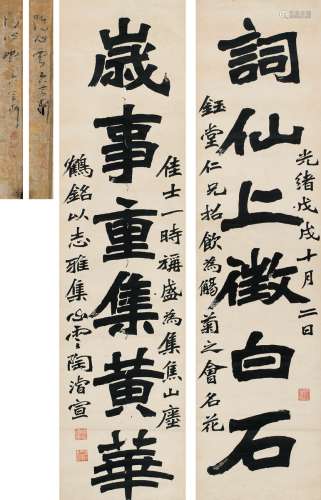 光緒戊戌十月二日
詞仙上徵白石
鈺堂仁兄招飲為觴菊之會名花
佳士一時稱盛為集焦山瘞
歲事重集黃華
鶴銘以志雅集心雲陶濬宣